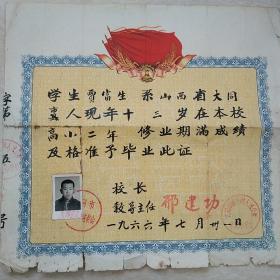 学生贾富生 系山西省大同
人现年十三岁在本校
高小二年 修业期满成绩
及格准予毕业此证
校长
教导主任 邢建功
一九六六年七月卅一日
字第
五
号